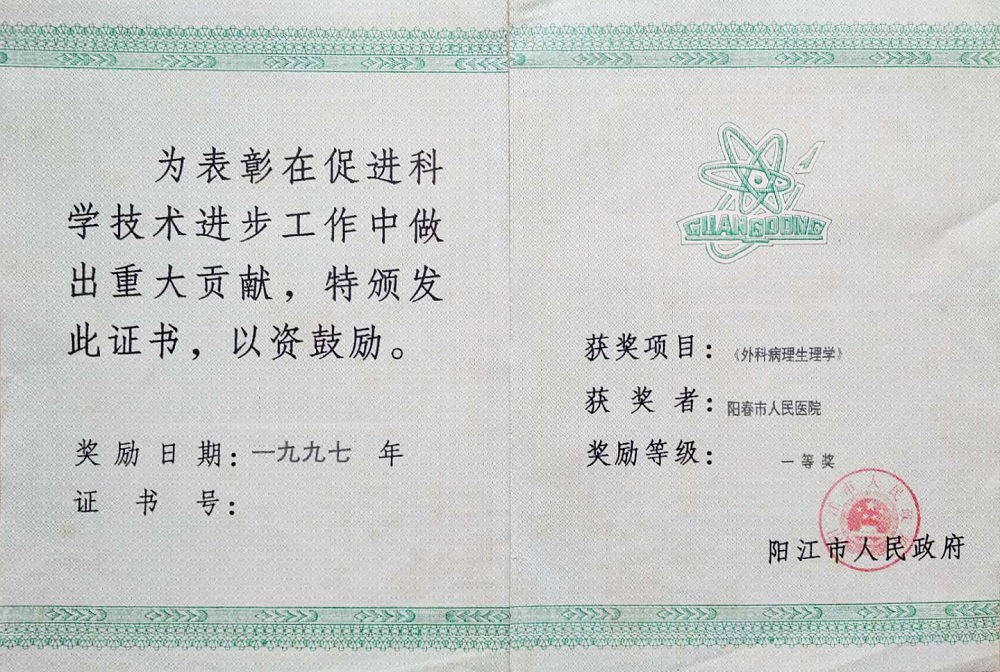 为表彰在促进科
学技术进步工作中做
出重大贡献，特颁发
此证书，以资鼓励。
奖励日期：一九九七 年
证书号：
GUANGDONG
获奖项目：《外科病理生理学》
获奖者：阳春市人民医院
奖励等级：一等奖
阳江市人民政府
阳江市人民政府